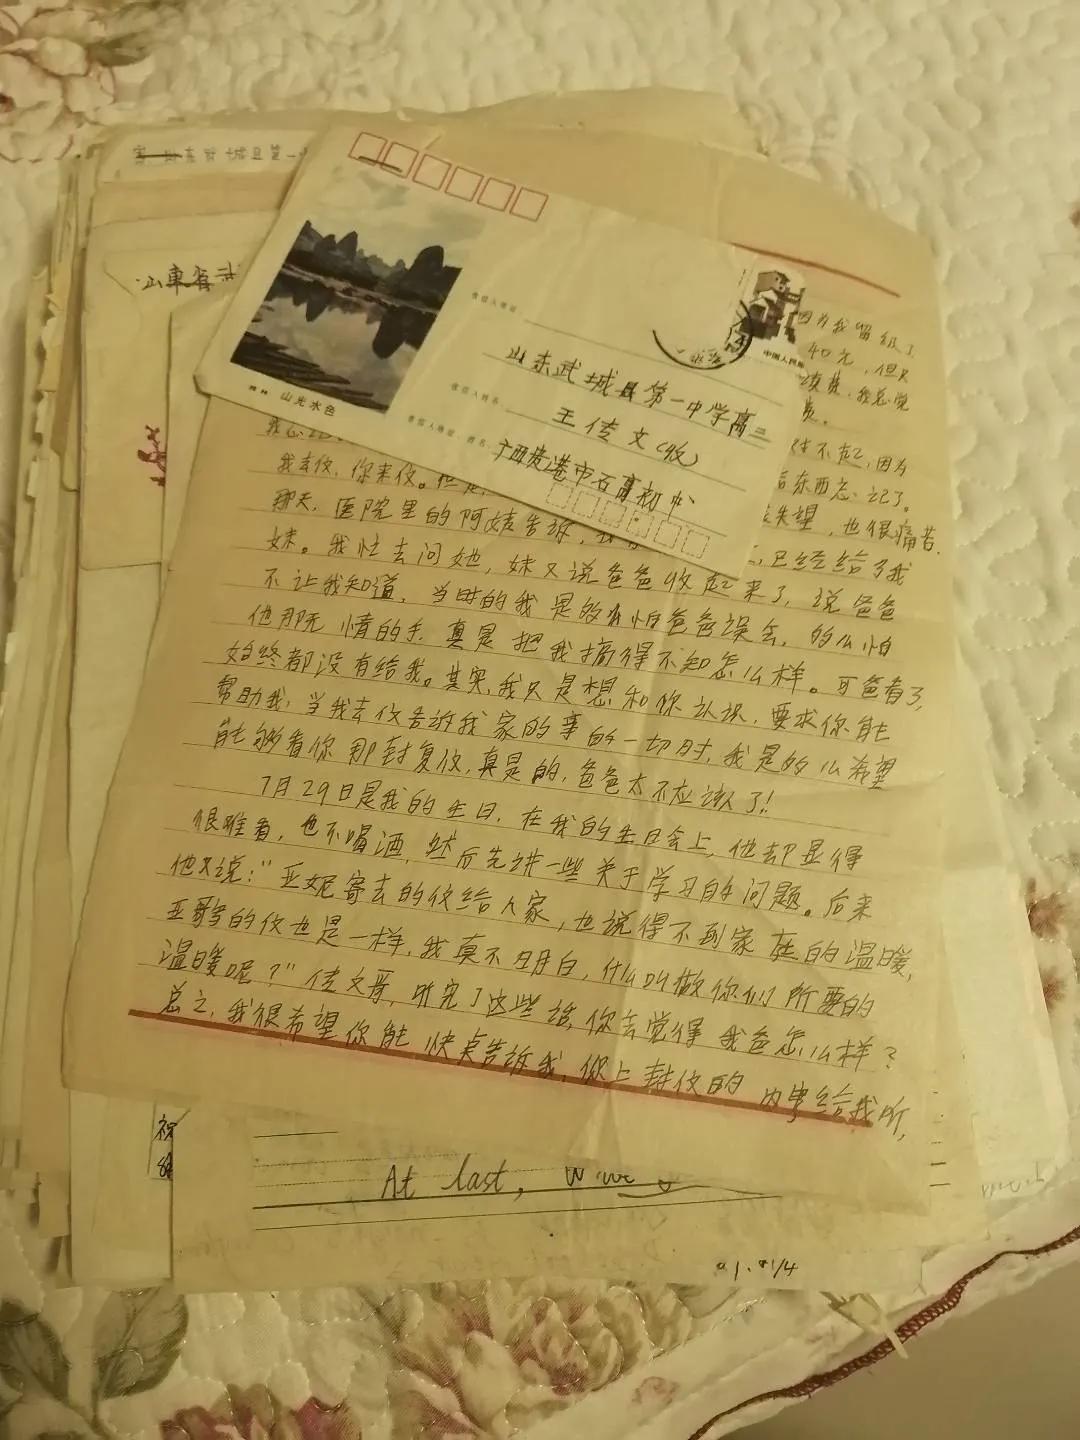 山东武城县第一
山東省武
桂林 山光水色
收信人地址
山东武城县第一中学高三
收信人姓名
王传文(收)
寄信人地址 姓名
广西贵港市石高初中
中国人民邮
因为我留级了
40元,但只
读费,我总觉
对不起,因为
后东西忘记了。
失望,也很痛苦.
我去仪,你来仪。但是,
那天,医院里的阿姨告诉,我
已经给了我
妹。我忙去问她,妹又说爸爸收起来了,说爸爸
不让我知道,当时的我是的么怕爸爸误会,的么怕
他那无情的手,真是把我搞得不知怎么样。可爸看了,
始终都没有给我。其实,我只是想和你认识,要求你能
帮助我,当我去仪告诉我家的事的一切时,我是的么希望
能够看你那封复仪,真是的,爸爸太不应该了!
7月29日是我的生日,在我的生日会上,他却显得
很难看,也不喝酒,然后先讲一些关于学习的问题。后来
他又说:“亚妮寄去的仪给人家,也说得不到家庭的温暖,
亚歌的仪也是一样,我真不明白,什么叫做你们所要的
温暖呢?”传文哥,听完了这些话,你会觉得我爸怎么样?
总之,我很希望你能快点告诉我,你上封仪的内事给我听,
祝
At last,